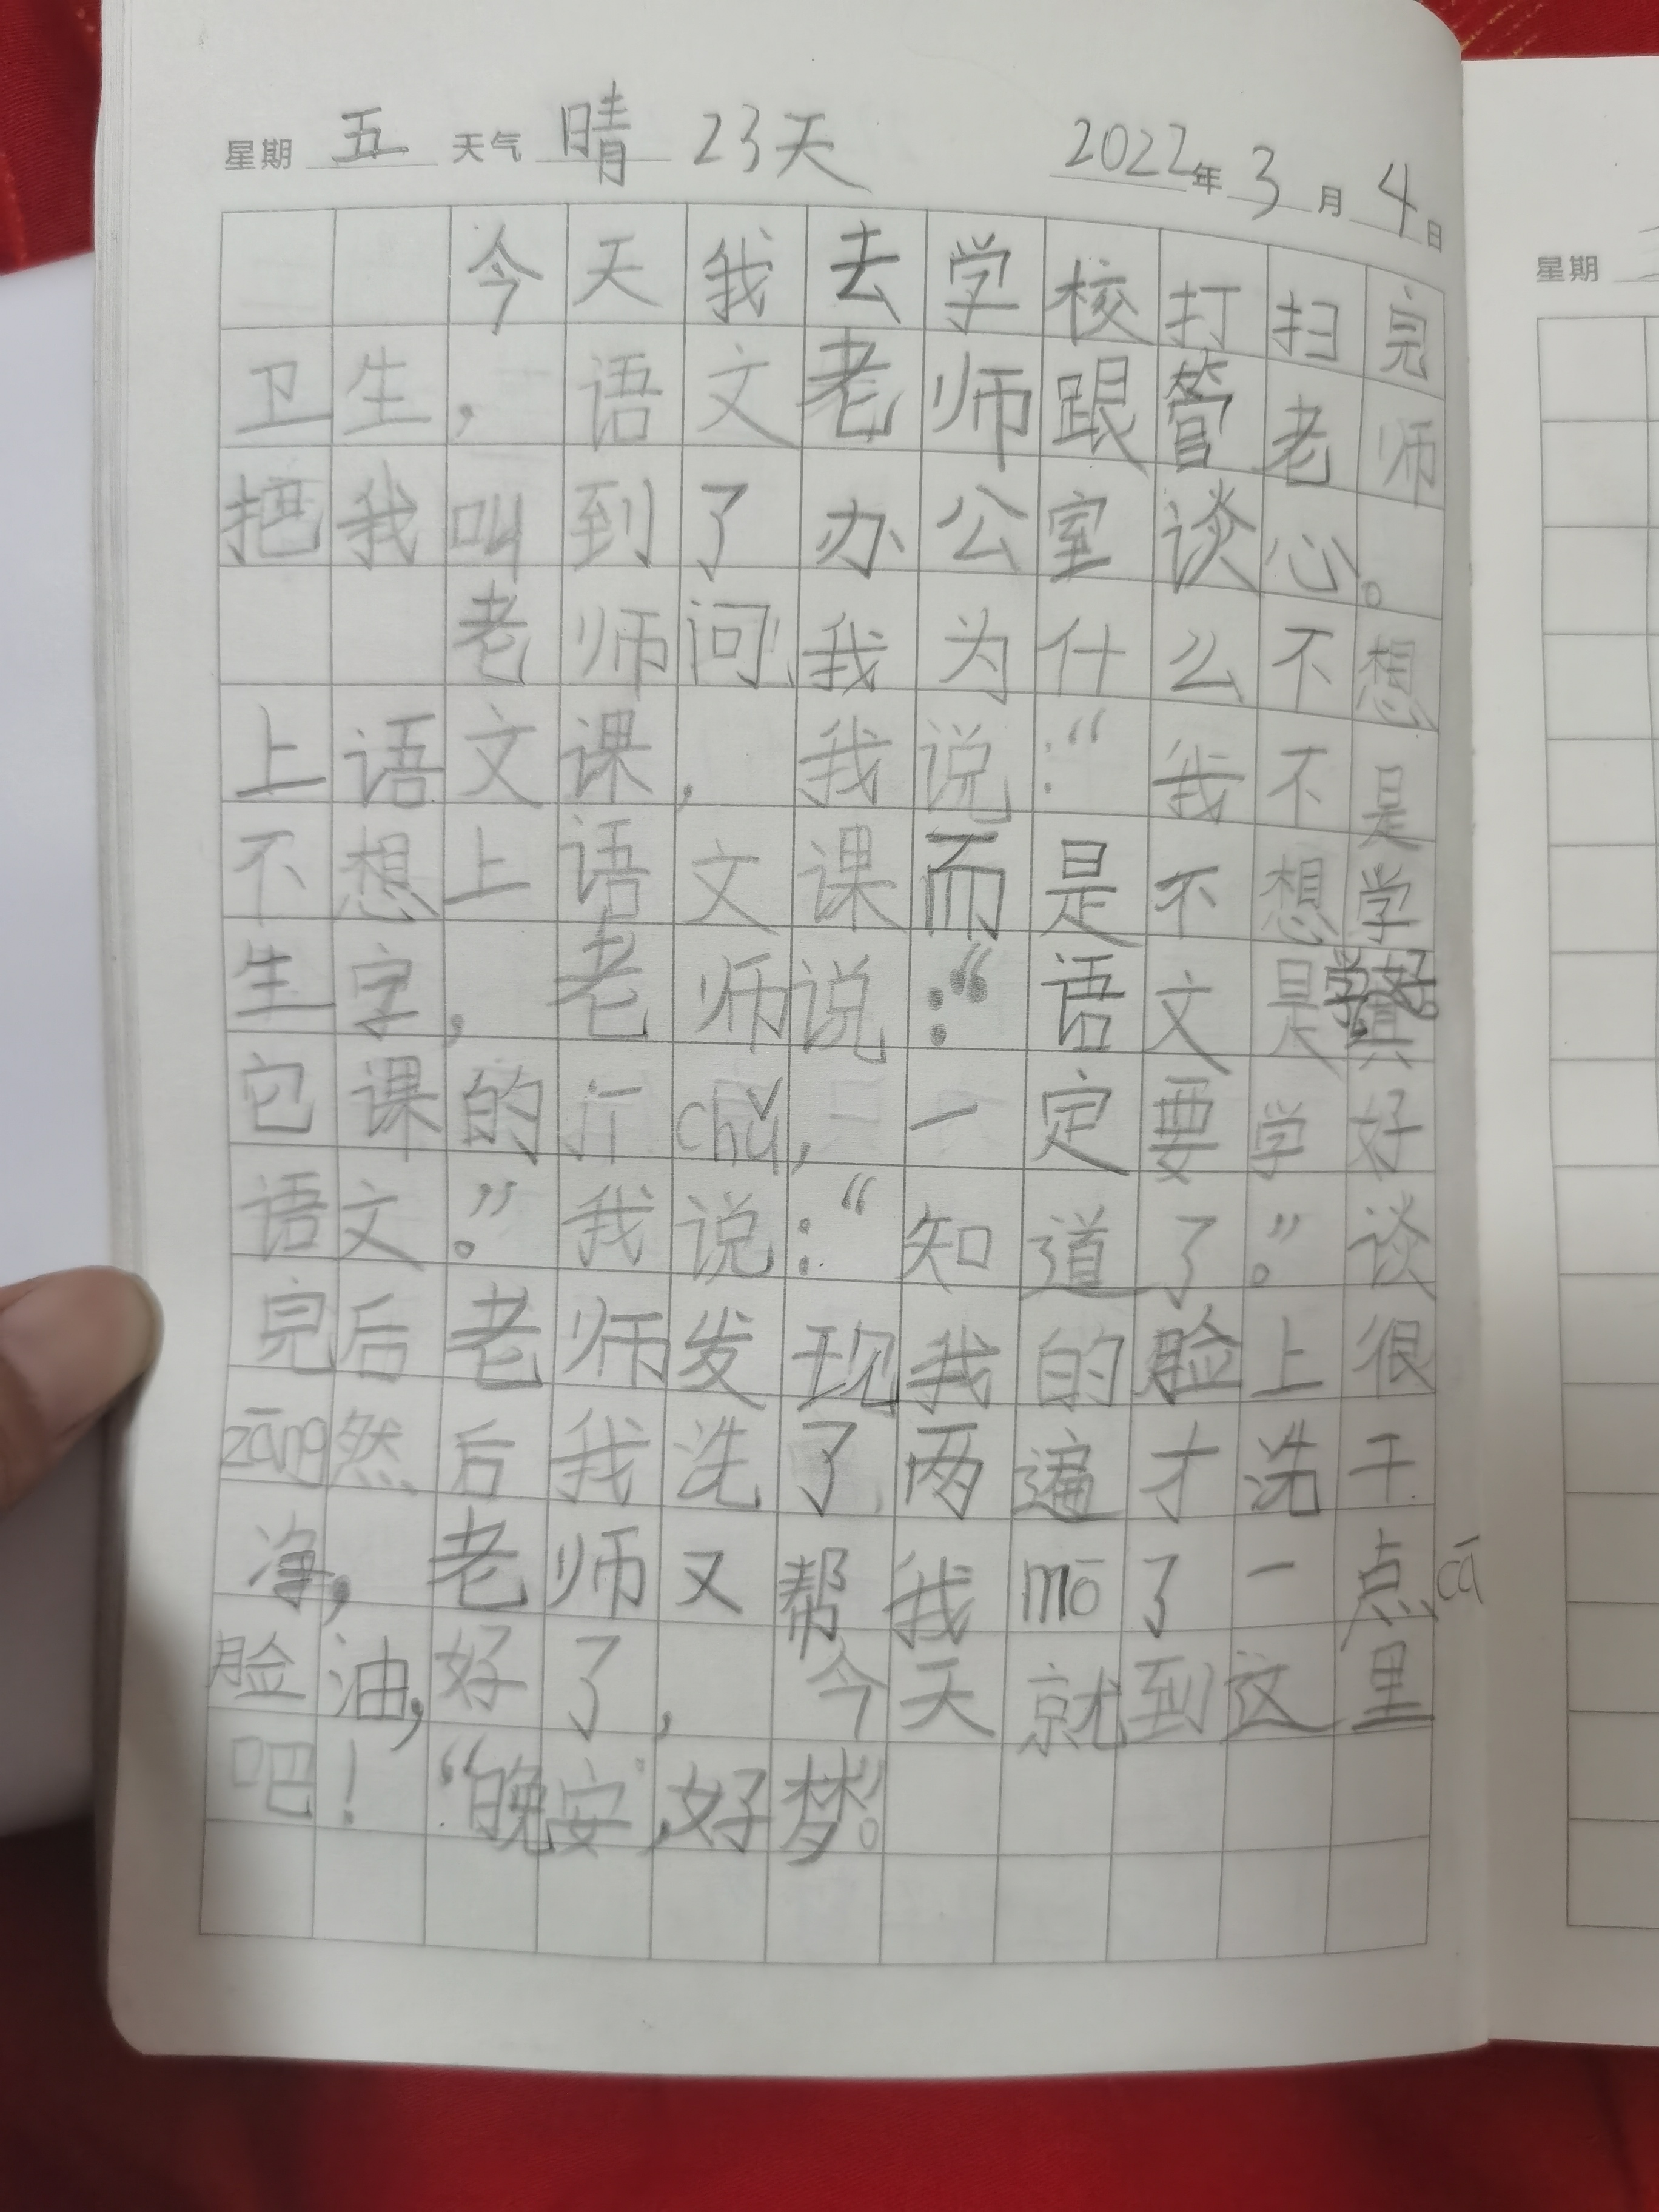 星期 五 天气 晴 23天 2022年 3 月 4 日
今天我去学校打扫完
卫生，语文老师跟管老师
把我叫到了办公室谈心。
老师问我为什么不想
上语文课，我说：“我不是
不想上语文课而是不想学
生字，老师说：“语文是学好
它课的斤chǔ，一定要学好
语文。”我说：“知道了。”谈
完后老师发现我的脸上很
zāng然后我洗了两遍才洗干
净，老师又帮我mō了一点cā
脸油，好了，今天就到这里
吧！“晚安”，好梦”。
星期